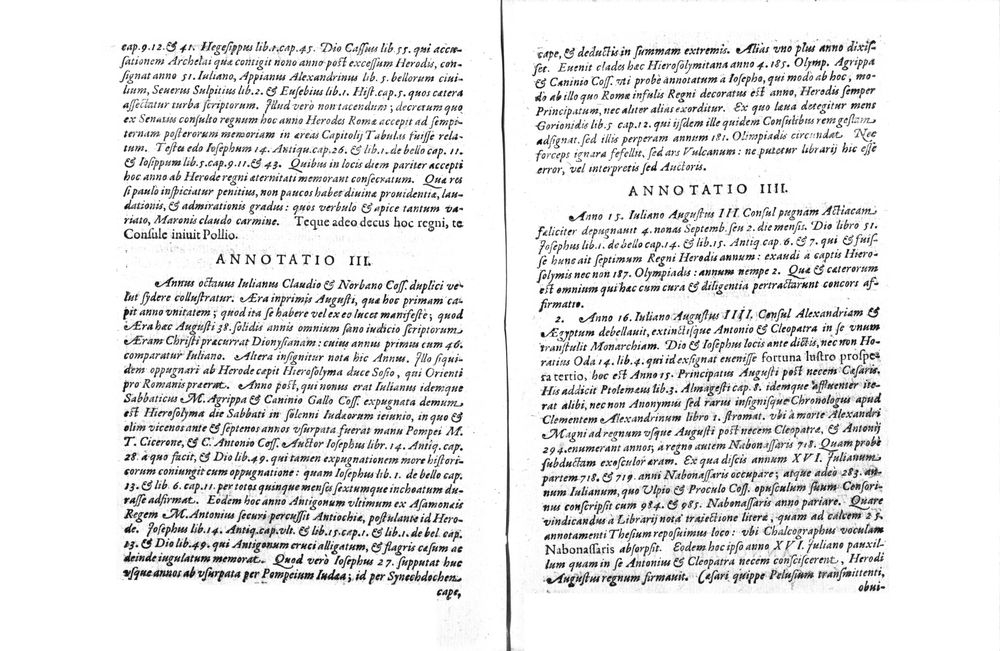 cap.9.12.& 41. Hegesippus lib.1.cap.45. Dio Cassius lib 55. qui accu-
sationem Archelai quæ contigit nono anno post excessum Herodis, con-
signat anno 51. Iuliano, Appianus Alexandrinus lib. 5. bellorum ciui-
lium, Seuerus Sulpitius lib.2. & Eusebius lib.1. Hist.cap.5. quos cætera
assectatur turba scriptorum. Illud verò non tacendum; decretum quo
ex Senatus consulto regnum hoc anno Herodes Romæ accepit ad sempi-
ternam posterorum memoriam in æreas Capitolij Tabulas fuisse rela-
tum. Testu edo Iosephum 14. Antiqu.cap.26. & lib.1.de bello cap. 11.
& Iosippum lib.5.cap.9.11.& 43. Quibus in locis diem pariter accepti
hoc anno ab Herode regni æternitati memorant consecratum. Quæ res
si paulo inspiciatur penitius, non paucos habet diuinæ prouidentiæ, lau-
dationis, & admirationis gradus: quos verbulo & apice tantum va-
riato, Maronis claudo carmine. Teque adeo decus hoc regni, te
Consule iniuit Pollio.
ANNOTATIO III.
Annus octauus Iulianus Claudio & Norbano Coss. duplici ve-
lut sydere collustratur. Æra inprimis Augusti, qua hoc primam ca-
pit anno vnitatem; quod ita se habere vel ex eo lucet manifeste; quod
Æra hæc Augusti 38. solidis annis omnium sano iudicio scriptorum
Æram Christi præcurrat Dionysianam: cuius annus primus cum 46.
comparatur Iuliano. Altera insignitur nota hic Annus. Illo siqui-
dem oppugnari ab Herode cæpit Hierosolyma duce Sosio, qui Orienti
pro Romanis præerat. Anno pòst, qui nonus erat Iulianus idemque
Sabbaticus M. Agrippa & Caninio Gallo Coss. expugnata demum
est Hierosolyma die Sabbati in solenni Iudæorum ieiunio, in quo &
olim vicenos ante & septenos annos vsurpata fuerat manu Pompei M.
T. Cicerone, & C. Antonio Coss. Auctor Iosephus libr. 14. Antiq. cap.
28. à quo facit, & Dio lib.49. qui tamen expugnationem more histori-
corum coniungit cum oppugnatione: quam Iosephus lib. 1. de bello cap.
13. & lib. 6. cap.11. per totos quinque menses sextumque inchoatum du-
rasse adfirmat. Eodem hoc anno Antigonum vltimum ex Asamonais
Regem M. Antonius securi percussit Antiochiæ, postulante id Hero-
de. Iosephus lib.14. Antiq.cap.vlt. & lib.15.cap.1. & lib.1. de bel.cap.
13. & Dio lib.49. qui Antigonum cruci alligatum, & flagris cæsum ac
deinde iugulatum memorat. Quod verò Iosephus 27. supputat huc
vsque annos ab vsurpata per Pompeium Iudæa; id per Synechdochen
cape,
cape, & deductis in summam extremis. Alias vno plus anno dixis-
set. Euenit clades hæc Hierosolymitana anno 4. 185. Olymp. Agrippa
& Caninio Coss. vti probè annotatum à Iosepho, qui modo ab hoc, mo-
do ab illo quo Romæ infulis Regni decoratus est anno, Herodis semper
Principatum, nec aliter alias exorditur. Ex quo læua detegitur mens
Gorionidis lib.5 cap.12. qui ijsdem ille quidem Consulibus rem gestam
adsignat, sed illis perperam annum 181. Olimpiadis circundat. Nec
forceps ignara fefellit, sed ars Vulcanum: ne putetur librarij hic esse
error, vel interpretis sed Auctoris.
ANNOTATIO IIII.
Anno 15. Iuliano Augustus III. Consul pugnam Actiacam
fæliciter depugnauit 4. nonas Septemb. seu 2. die mensis. Dio libro 51.
Iosephus lib.1. de bello cap.14. & lib.15. Antiq cap.6. & 7. qui & fuis-
se hunc ait septimum Regni Herodis annum: exaudi à captis Hiero-
solymis nec non 187. Olympiadis: annum nempe 2. Quæ & cæterorum
est omnium qui hæc cum cura & diligentia pertractarunt concors af-
firmatio.
2. Anno 16. Iuliano Augustus IIII. Consul Alexandriam &
Ægyptum debellauit, extinctisque Antonio & Cleopatra in se vnum
transtulit Monarchiam. Dio & Iosephus locis ante dictis, nec non Ho-
ratius Oda 14. lib.4. qui id exsignat euenisse fortuna lustro prospe-
ra tertio, hoc est Anno 15. Principatus Augusti post necem Cæsaris.
His addicit Ptolemæus lib.3. Almagesti cap.8. idemque affluenter ite-
rat alibi, nec non Anonymus sed rarus insignisque Chronologus apud
Clementem Alexandrinum libro 1. stromat. vbi à morte Alexandri
Magni ad regnum vsque Augusti post necem Cleopatræ, & Antonij
294. enumerant annos; à regno autem Nabonassaris 718. Quam probè
subductam exosculor æram. Ex qua discis annum XVI. Iulianum
partem 718. & 719. anni Nabonassaris occupare; atque adeo 283. an-
num Iulianum, quo Vlpio & Proculo Coss. opusculum suum Consori-
nus conscripsit cum 984. & 985. Nabonassaris anno pariare. Quare
vindicandus à Librarij nota traiectione literæ, quam ad calcem 25.
annotamenti Thesium reposuimus loco: vbi Chalcographus voculam
Nabonassaris absorpsit. Eodem hoc ipso anno XVI. Iuliano pauxil-
lum quam in se Antonius & Cleopatra necem consciscerent, Herodi
Augustus regnum firmauit. Cæsari quippe Pelusium transmittenti,
obui-